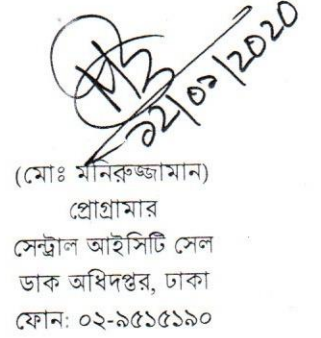 ১২/০১/2020
(মোঃ মনিরুজ্জামান)
প্রোগ্রামার
সেন্ট্রাল আইসিটি সেল
ডাক অধিদপ্তর, ঢাকা
ফোন: ০২-৯৫১৫১৯০